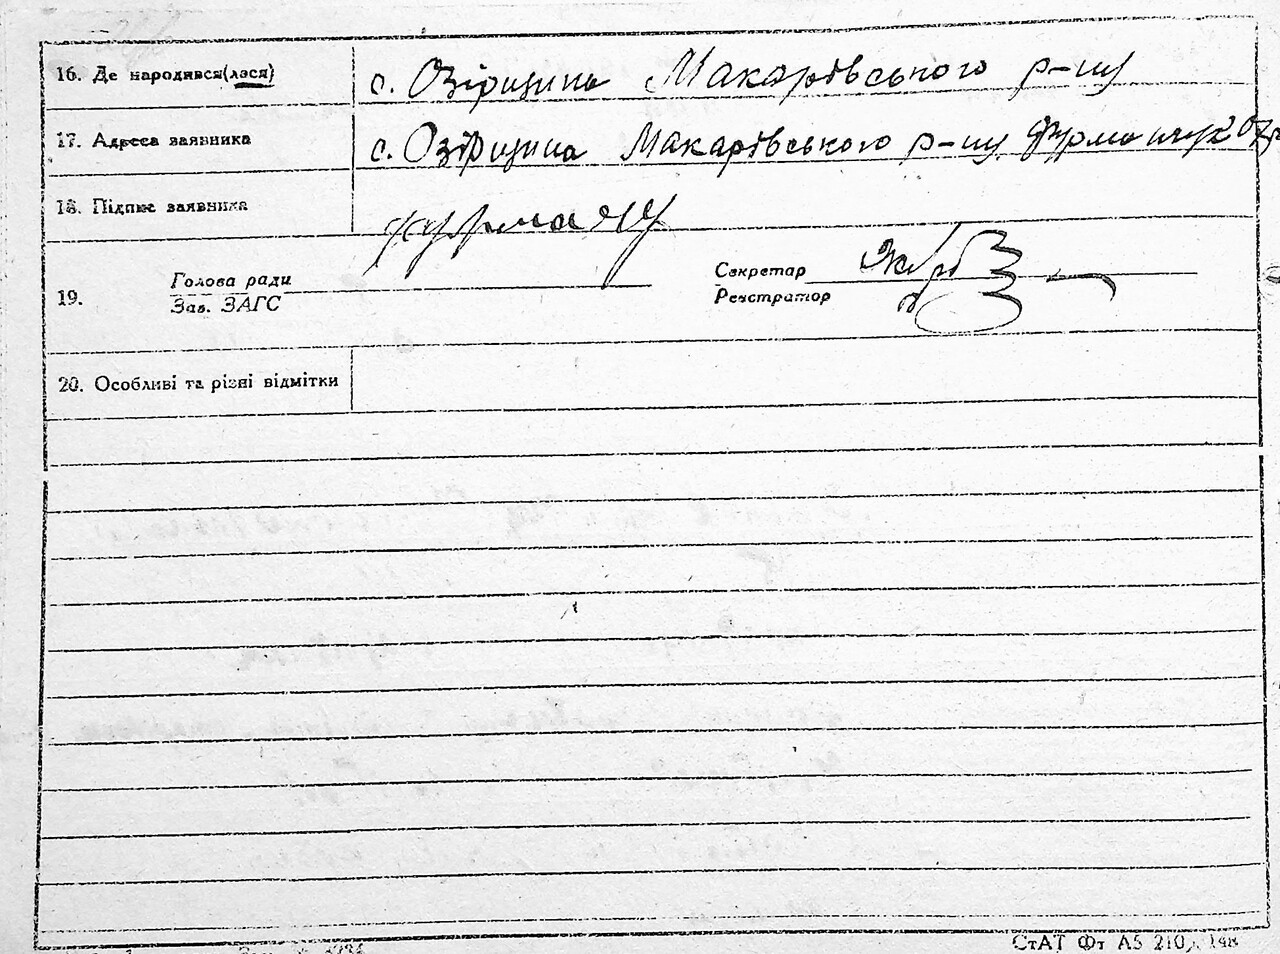 16. Де народився(лася) с. Озірщина Макарівського р-ну
17. Адреса заявника с. Озірщина Макарівського р-ну
18. Підпис заявника
19. Голова ради
Зав. ЗАГС
Секретар
Реєстратор
20. Особливі та різні відмітки
СтАТ Фт А5 210 148